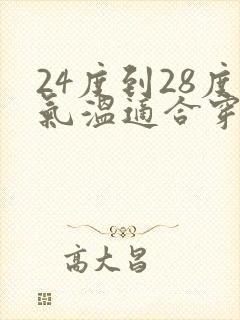 24度到28度
氣溫適合穿
高大昌